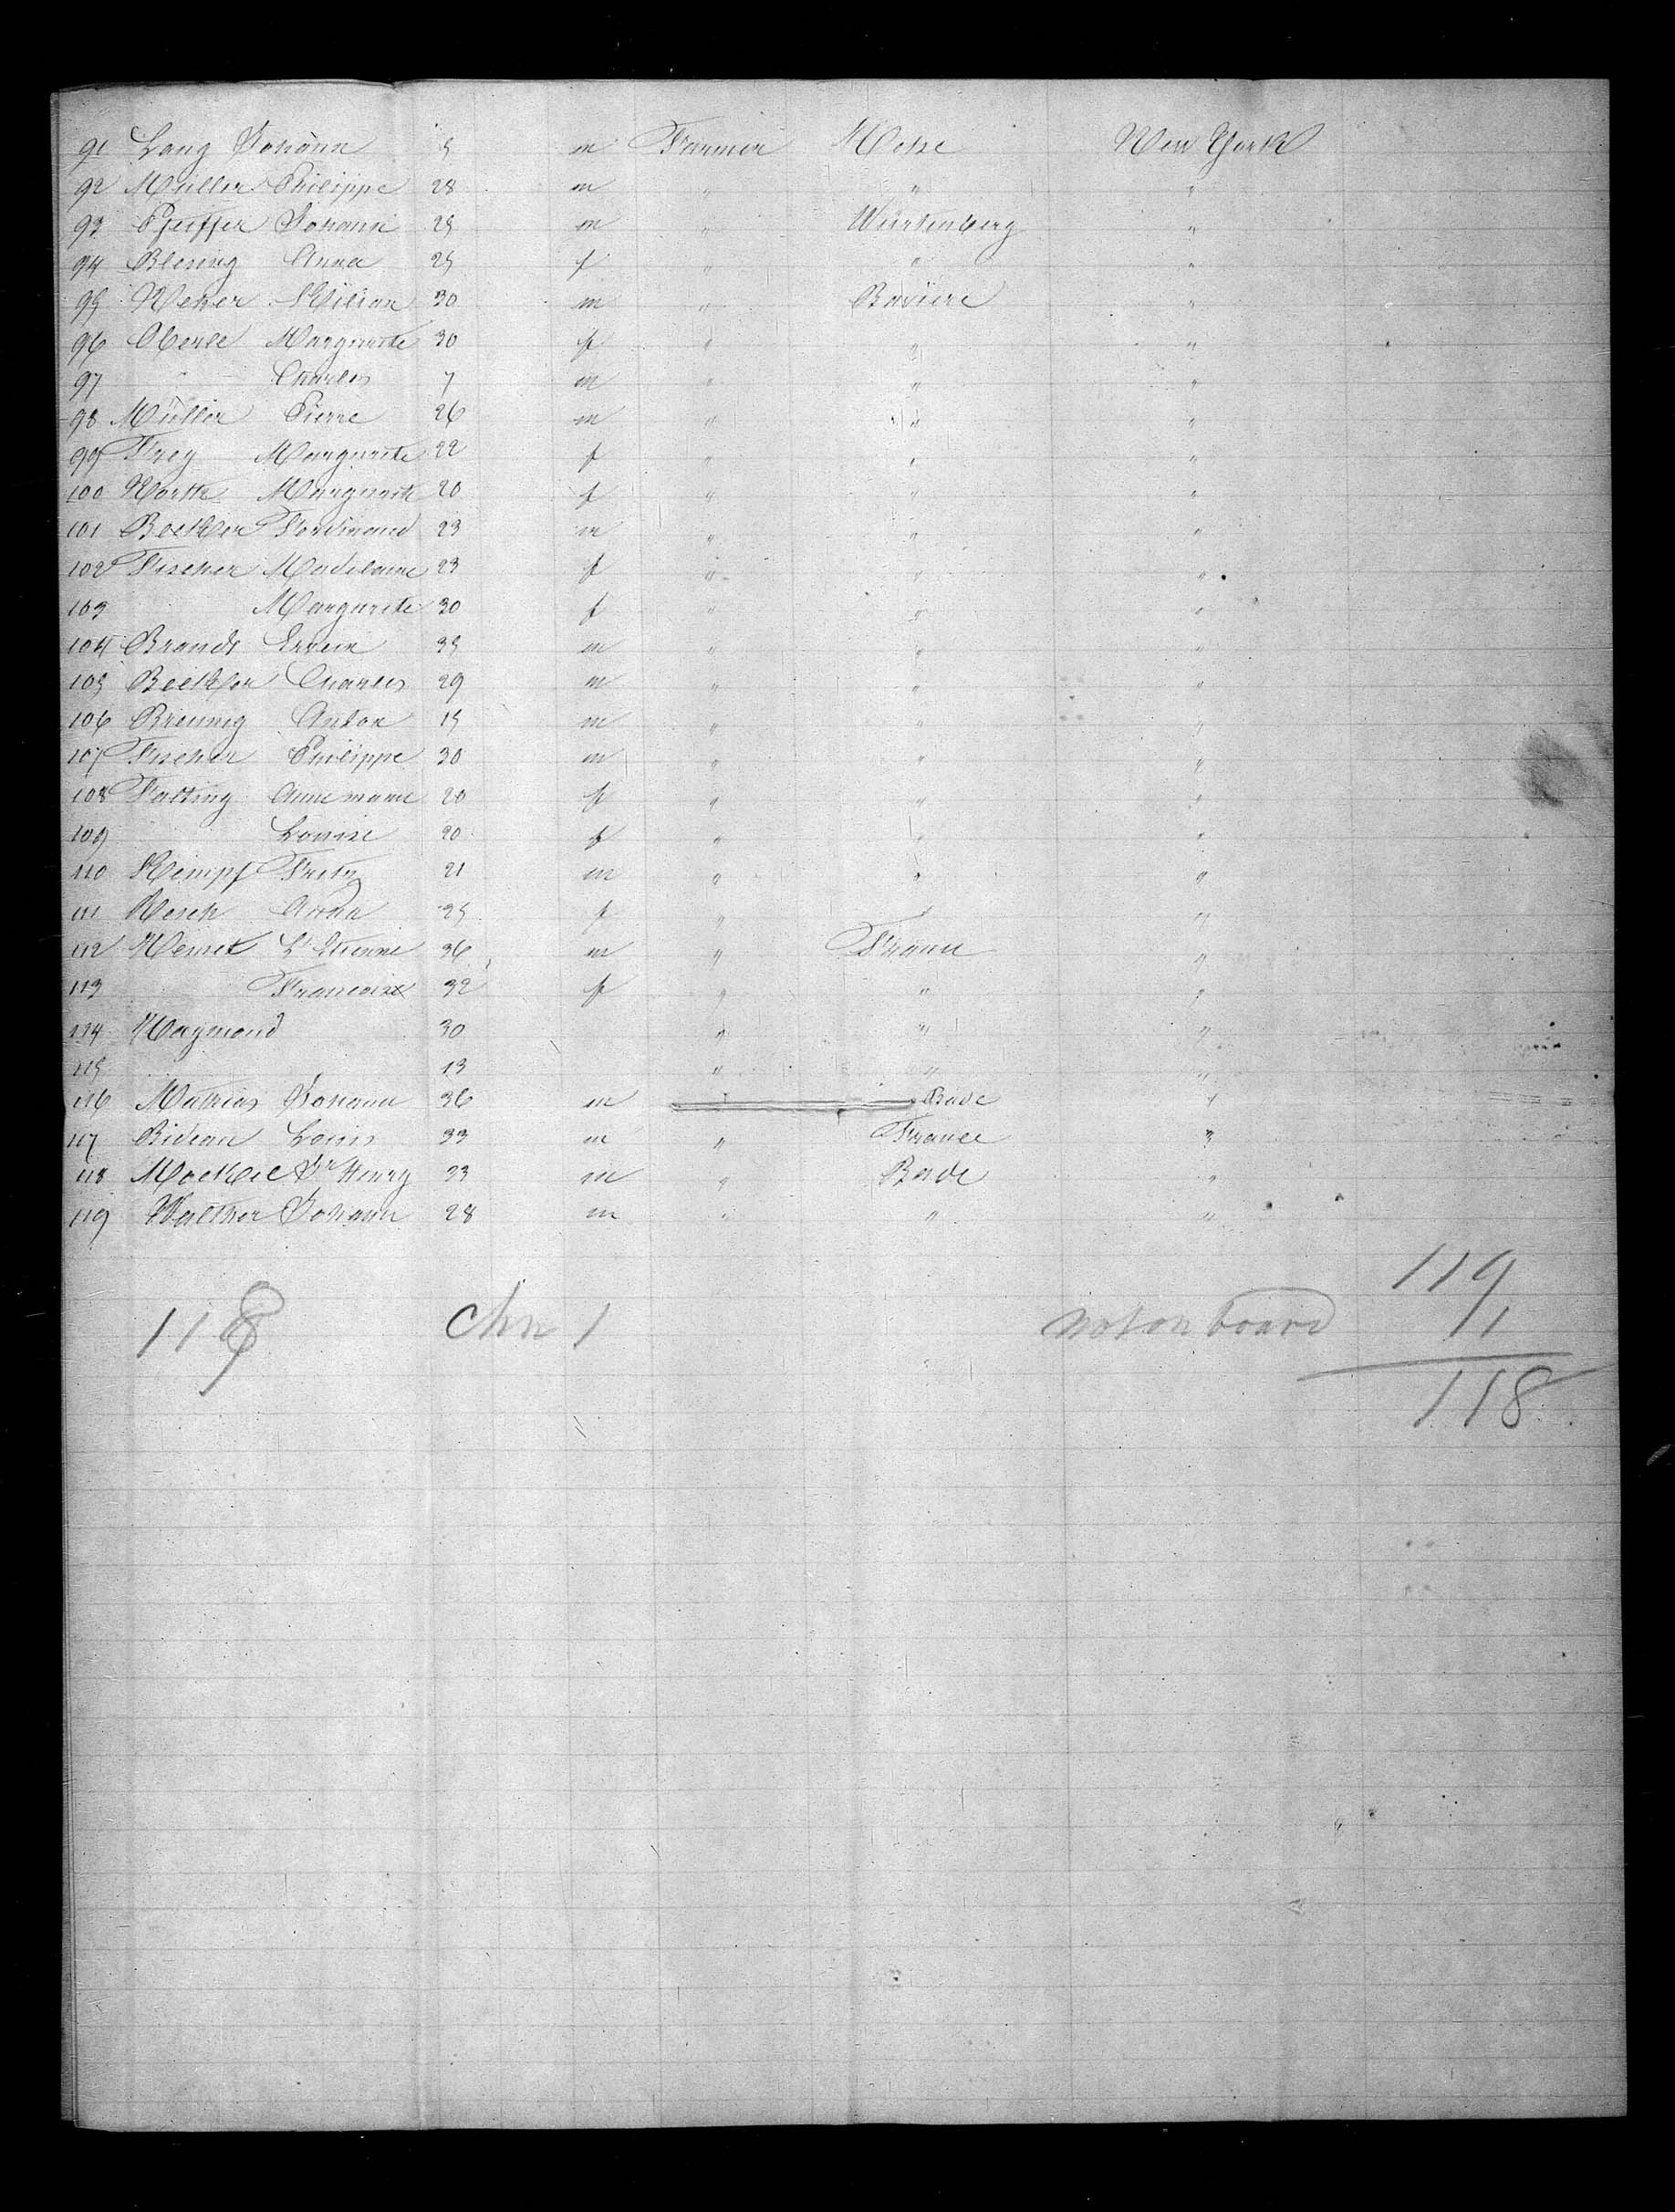 91 Lang Johann 5 m Farmer Hesse New York
92 Müller Philippe 28 m " " "
93 Pfeiffer Johann 25 m " Würtenberg "
94 Blesing Anna 25 f " " "
95 Kilian 30 m " Baviere "
96 Oberle Margurete 30 f " " "
97 Charles 7 m " " "
98 Müller Pierre 26 m " " "
99 Frey Margurete 22 f " " "
100 Margurete 20 f " " "
101 Ferdinand 23 m " " "
102 Fischer Madelaine 23 f " " "
103 Margurete 30 f " " "
104 Brandt Erwin 35 m " " "
105 Charles 29 m " " "
106 Breunig Anton 15 m " " "
107 Fischer Philippe 30 m " " "
108 Anne marie 20 f " " "
109 Louise 20 f " " "
110 Kempf Fritz 21 m " " "
111 Resch Anna 25 f " " "
112 Etienne 36 m " France "
113 Francoise 32 f " " "
114 30 " " "
115 13 " " "
116 Mathias Johann 36 m Bade "
117 Louis 33 m " France "
118 Henry 33 m " Bade "
119 Walther Johann 28 m " " "
119
118 1 not on board 1
118